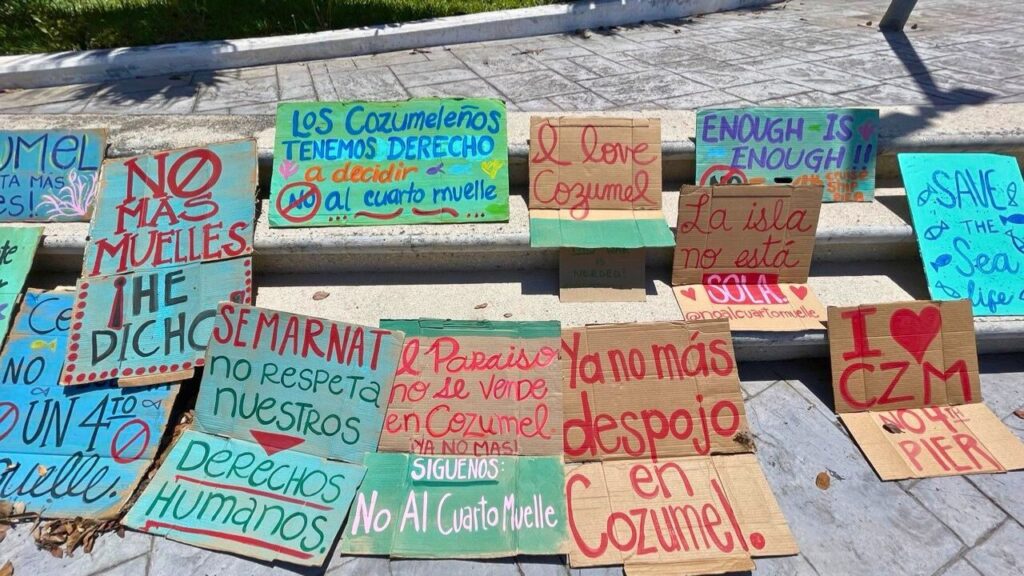 UMEL
TA MÁS
ES!
NO
MÁS
MUELLES.
¡HE
DICHO
LOS COZUMELEÑOS
TENEMOS DERECHO
a decidir
NO al cuarto muelle
I love
Cozumel
ENOUGH IS
ENOUGH!!
NO
La isla
no está
SOLA
@noalcuartomuelle
SAVE
THE
Sea
life
NO
UN 4TO
Muelle.
SEMARNAT
no respeta
nuestros
DERECHOS
HUMANOS.
El Paraiso
no se vende
en Cozumel.
¡YA NO MAS!
SIGUENOS:
No Al Cuarto Muelle
Ya no más
despojo
en
Cozumel.
I
CZM
NO 4TH
PIER